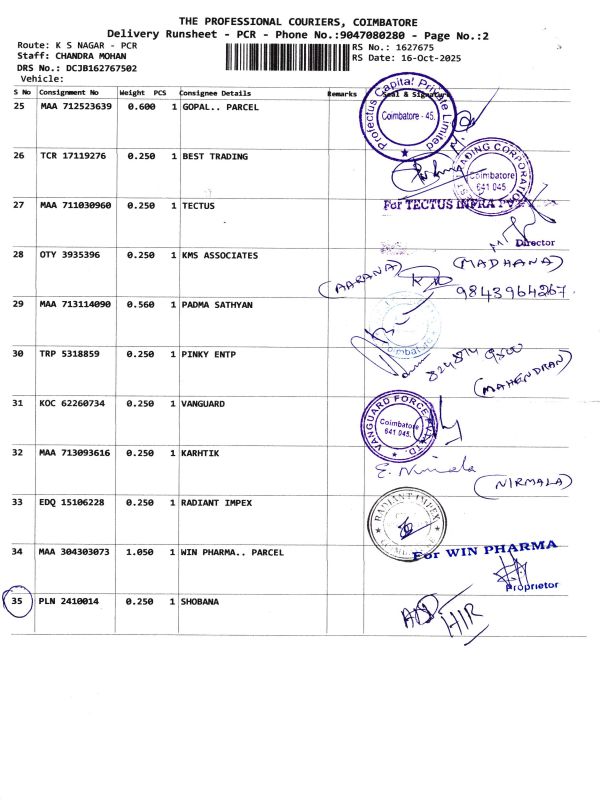 THE PROFESSIONAL COURIERS, COIMBATORE
Delivery Runsheet - PCR - Phone No.:9047080280 - Page No.:2
Route: K S NAGAR - PCR
RS No.: 1627675
Staff: CHANDRA MOHAN
RS Date: 16-Oct-2025
DRS No.: DCJB162767502
Vehicle:
S No Consignment No Weight PCS Consignee Details Remarks Seal & Signature
25 MAA 712523639 0.600 1 GOPAL.. PARCEL
Projectus Capital Private Limited
Coimbatore - 45.
26 TCR 17119276 0.250 1 BEST TRADING
Coimbatore
641 045.
27 MAA 711030960 0.250 1 TECTUS
For TECTUS INFRA
Director
28 OTY 3935396 0.250 1 KMS ASSOCIATES
(MADHANA)
(AARANA)
9843964267
29 MAA 713114090 0.560 1 PADMA SATHYAN
30 TRP 5318859 0.250 1 PINKY ENTP
(MAHENDRAN)
31 KOC 62260734 0.250 1 VANGUARD
VANGUARD FORCE PVT. LTD.
Coimbatore
641 045.
32 MAA 713093616 0.250 1 KARHTIK
E. Nirmala
(NIRMALA)
33 EDQ 15106228 0.250 1 RADIANT IMPEX
RADIANT IMPEX
34 MAA 304303073 1.050 1 WIN PHARMA.. PARCEL
For WIN PHARMA
Proprietor
35 PLN 2410014 0.250 1 SHOBANA
H1R